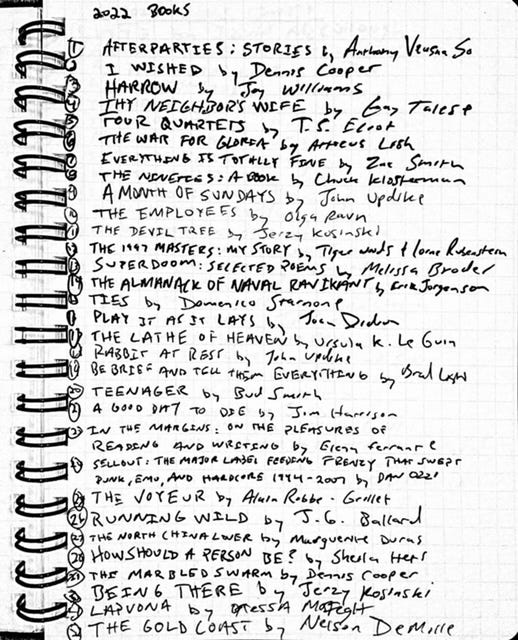 2022 BOOKS
1 AFTERPARTIES: STORIES by Anthony Veasna So
I WISHED by Dennis Cooper
HARROW by Joy Williams
THY NEIGHBOR'S WIFE by Gay Talese
FOUR QUARTETS by T.S. Eliot
THE WAR FOR GLORIA by Atticus Lish
EVERYTHING IS TOTALLY FINE by Zac Smith
THE NINETIES: A BOOK by Chuck Klosterman
A MONTH OF SUNDAYS by John Updike
THE EMPLOYEES by Olga Ravn
THE DEVIL TREE by Jerzy Kosinski
THE 1997 MASTERS: MY STORY by Tiger Woods & Lorne Rubenstein
SUPERDOOM: SELECTED POEMS by Melissa Broder
14 THE ALMANACK OF NAVAL RAVIKANT by Erik Jorgenson
TIES by Domenico Starnone
PLAY IT AS IT LAYS by Joan Didion
THE LATHE OF HEAVEN by Ursula K. Le Guin
RABBIT AT REST by John Updike
BE BRIEF AND TELL THEM EVERYTHING by Brad Listi
20 TEENAGER by Bud Smith
A GOOD DAY TO DIE by Jim Harrison
IN THE MARGINS: ON THE PLEASURES OF
READING AND WRITING by Elena Ferrante
SELLOUT: THE MAJOR LABEL FEEDING FRENZY THAT SWEPT
PUNK, EMO, AND HARDCORE 1994-2007 by DAN OZZI
THE VOYEUR by Alain Robbe-Grillet
26 RUNNING WILD by J.G. Ballard
27 THE NORTH CHINA LOVER by Marguerite Duras
28 HOW SHOULD A PERSON BE? by Sheila Heti
THE MARBLED SWARM by Dennis Cooper
BEING THERE by Jerzy Kosinski
LAPVONA by Ottessa Moshfegh
THE GOLD COAST by Nelson DeMille